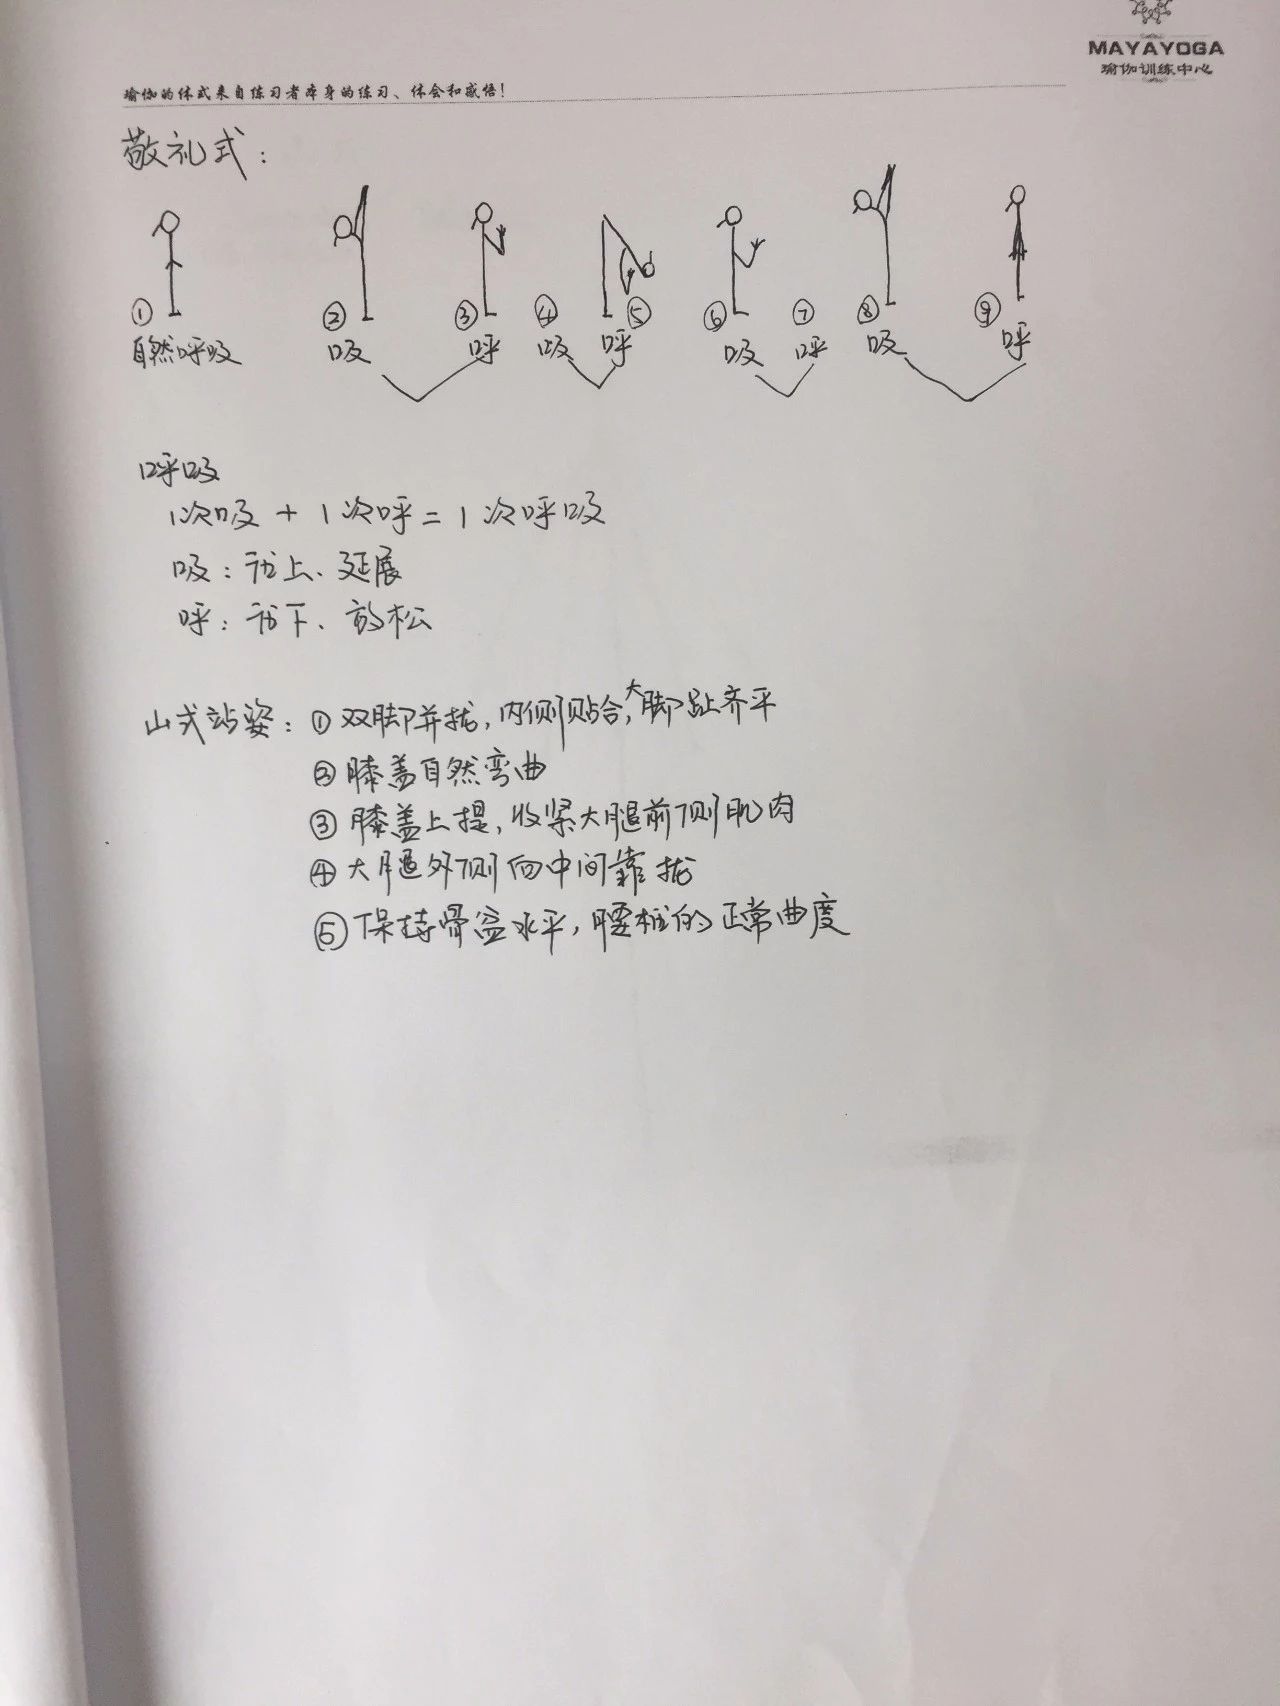 MAYAYOGA
瑜伽训练中心
瑜伽的体式来自练习者本身的练习、体会和感悟!
敬礼式：
① ② ③ ④ ⑤ ⑥ ⑦ ⑧ ⑨
自然呼吸 吸 呼 吸 呼 吸 呼 吸 呼
呼吸
1次吸 + 1次呼 = 1次呼吸
吸：上、延展
呼：下、放松
山式站姿：①双脚并拢,内侧贴合,大脚趾齐平
②膝盖自然弯曲
③膝盖上提,收紧大腿前侧肌肉
④大腿外侧向中间靠拢
⑤保持骨盆水平,腰椎的正常曲度